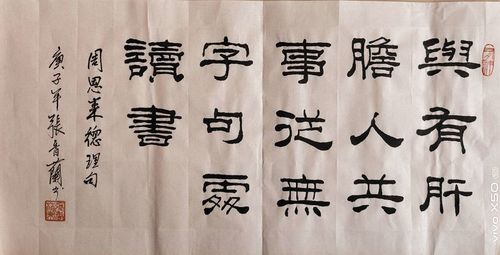 與有肝
膽人共
事從無
字句處
讀書
周恩來德理句
庚子年張音蘭书
vivo X50